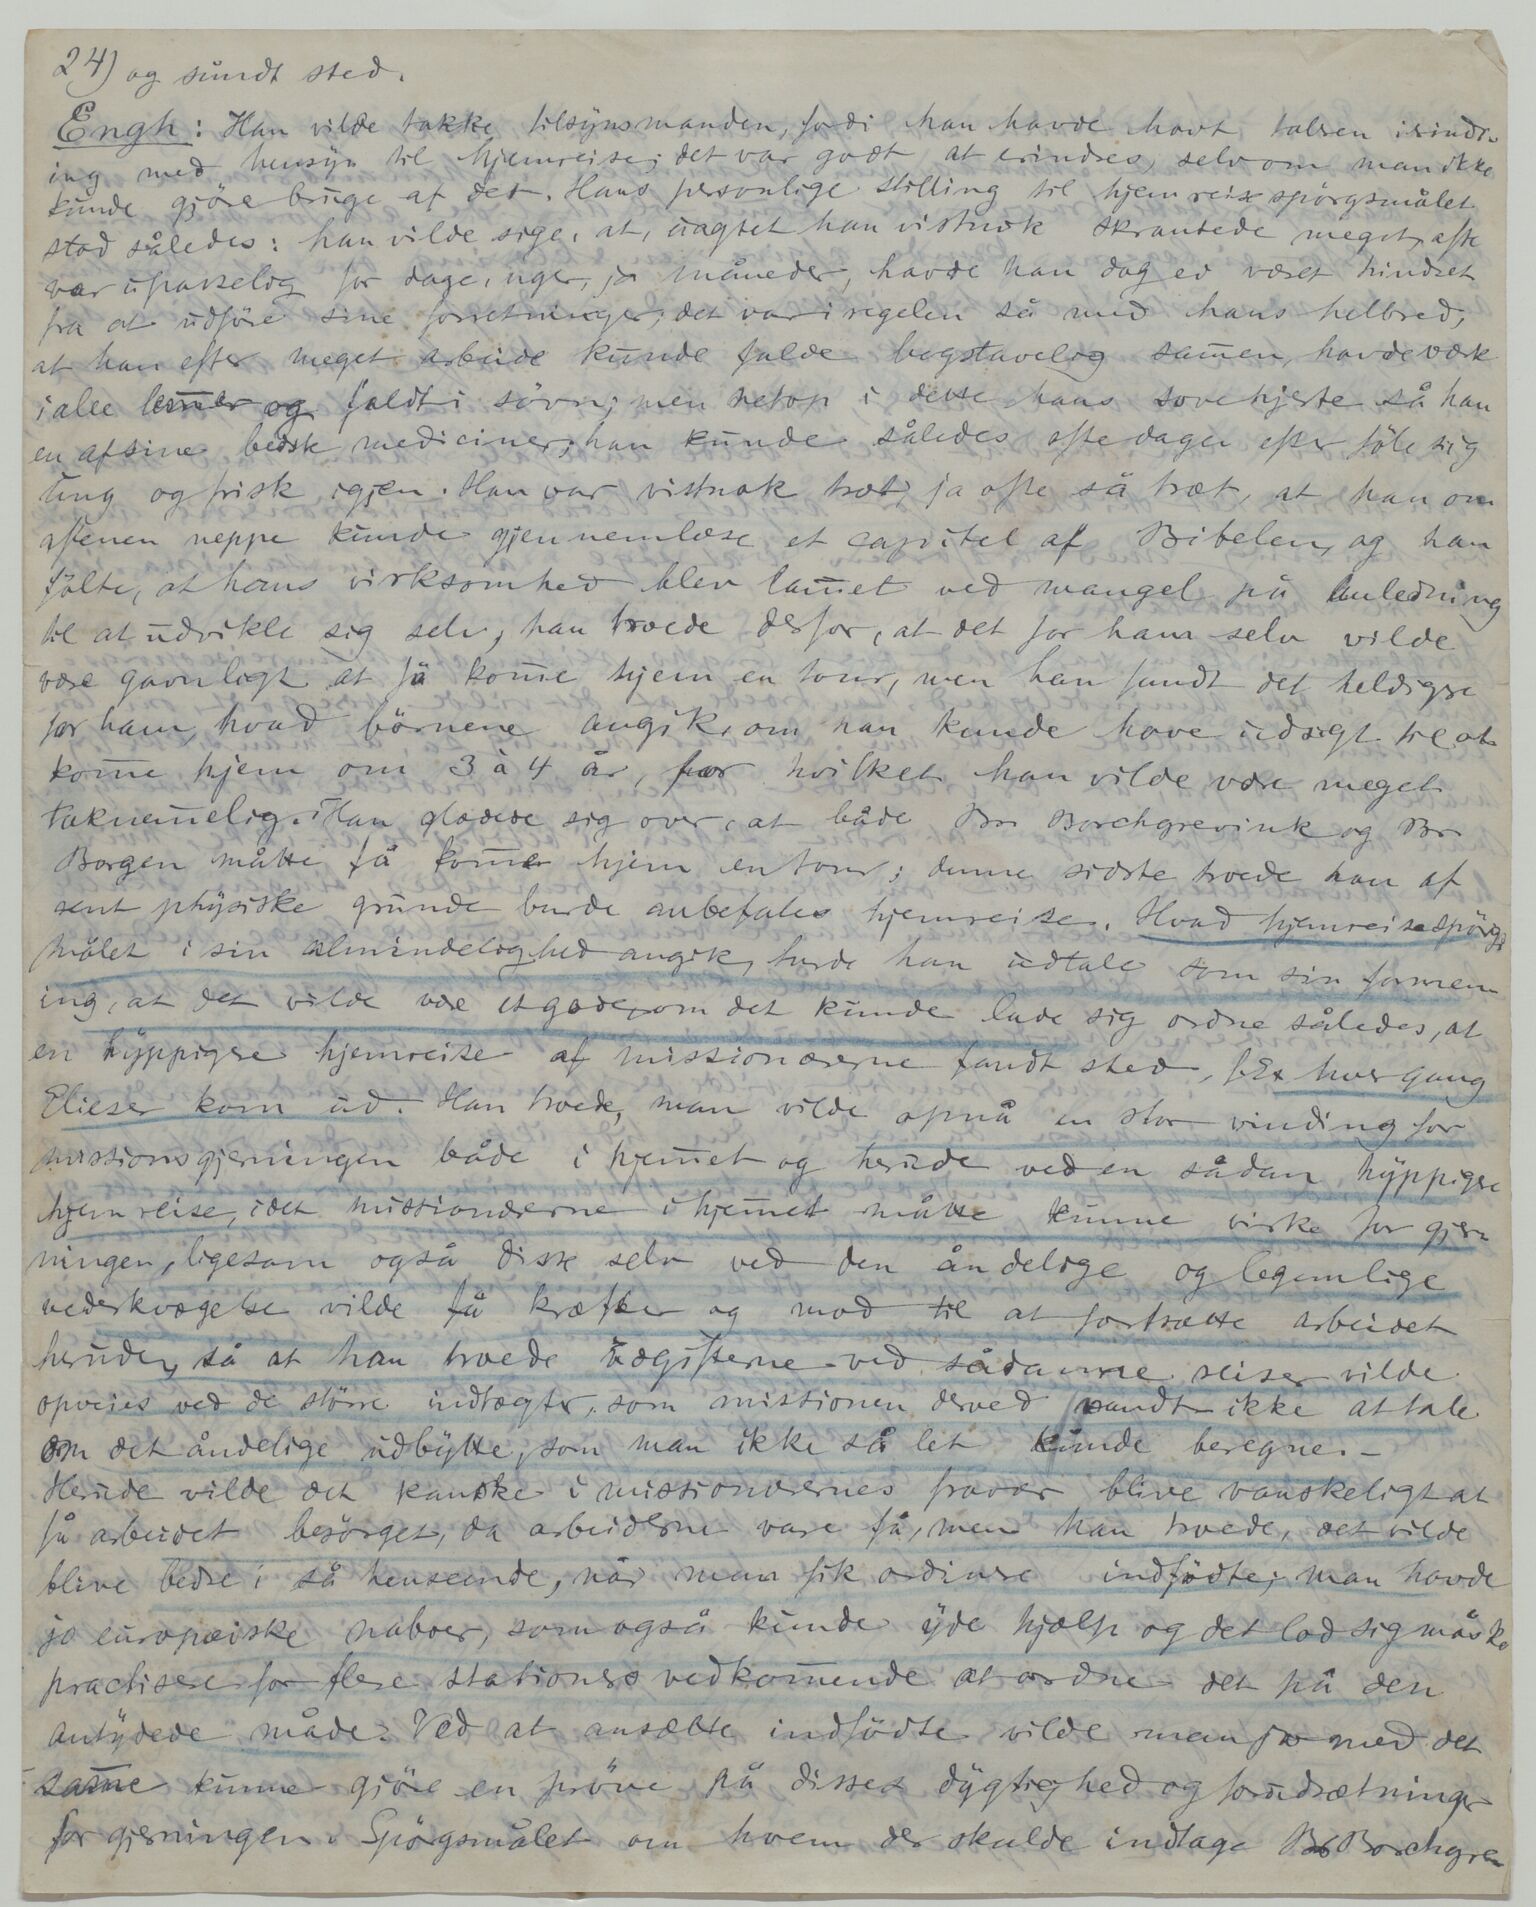 24) og sundt sted.
Engh: Han vilde takke tilsynsmanden, fordi han havde havt talsen i erindr-
ing med hensyn til hjemreise; det var godt at erindres, selv om man ikke
kunde gjöre brug af det. Hans personlige stilling til hjemreisespörgsmålet
stod således: han vilde sige, at, uagtet han vistnok skrantede meget, ofte
var upasselig for dage, uger, ja måneder, havde han dog ei været hindret
fra at udföre sine forretninger; det var i regelen så med hans helbred,
at han efter meget arbeide kunde falde bogstavelig samen, havde værk
i alle lemer og faldt i sövn; men netop i dette hans sovehjerte så han
en af sine bedste mediciner; han kunde således ofte dagen efter föle sig
ung og frisk igjen. Han var vistnok træt, ja ofte så træt, at han om
aftenen neppe kunde gjennemlæse et capitel af Bibelen, og han
fölte, at hans virksomhed blev lamet ved mangel på anledning
til at udvikle sig selv; han troede derfor, at det for ham selv vilde
være gavnligt at få kome hjem en tour, men han fandt det heldigre
for ham, hvad börnene angik, om han kunde have udsigt til at
kome hjem om 3 à 4 år, for hvilket han vilde være meget
taknemelig. Han glædede sig over, at både Br. Borchgrevink og Br.
Borgen måtte få kome hjem en tour; denne sidste troede han af
rent physiske grunde burde anbefales hjemreise. Hvad hjemreisespörgs
målet i sin almindelighed angik, burde han udtale som sin formen-
ing, at det vilde være et gode, om det kunde lade sig ordne således, at
en hyppigere hjemreise af missionærerne fandt sted, f. Ex hver gang
Elieser kom ud. Han troede, man vilde opnå en stor vinding for
missionsgjerningen både i hjemet og herude ved en sådan hyppigere
hjemreise, idet missionærerne i hjemet måtte kunne virke for gjer-
ningen, ligesom også disse selv ved den åndelige og legemlige
vederkvægelse vilde få kræfter og mod til at fortsætte arbeidet
herude, så at han troede udgifterne ved sådanne reiser vilde
opveies ved de större indtægter, som missionen derved vandt ikke at tale
om det åndelige udbytte, som man ikke så let kunde beregne. –
Herude vilde det kanske i missionærernes fravær blive vanskeligt at
få arbeidet besörget, da arbeiderne vare få, men han troede, det vilde
blive bedre i så henseende, når man fik ordinere indfödte; man havde
jo europæiske naboer, som også kunde yde hjælp og det lod sig måske
practisere for flere stationers vedkomende at ordne det på den
antydede måde. Ved at ansætte indfödte vilde man jo med det
same kunne gjöre en pröve på disses dygtighed og forudsætninger
for gjerningen. Spörgsmålet om hvem der skulde indtage Br Borchgre-